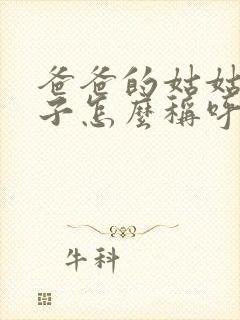 爸爸的姑姑
子怎麼稱呼
牛科